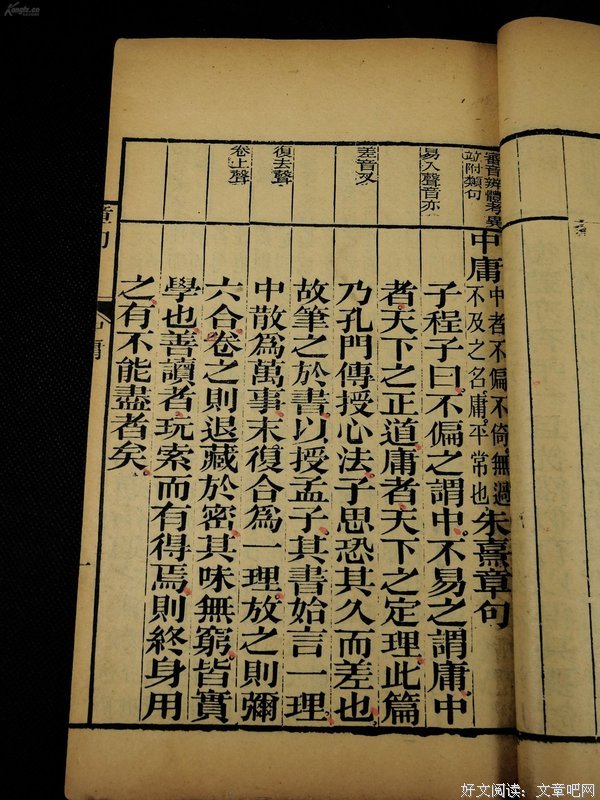 Kongfz.cn
審音辨體考異
竝附類句
易入聲音亦
差音叉
復去聲
卷上聲
中庸
中者不偏不倚無過
不及之名庸平常也
朱熹章句
子程子曰不偏之謂中不易之謂庸中
者天下之正道庸者天下之定理此篇
乃孔門傳授心法子思恐其久而差也
故筆之於書以授孟子其書始言一理
中散爲萬事末復合爲一理放之則彌
六合卷之則退藏於密其味無窮皆實
學也善讀者玩索而有得焉則終身用
之有不能盡者矣
章句
一
好文阅读：文章吧网